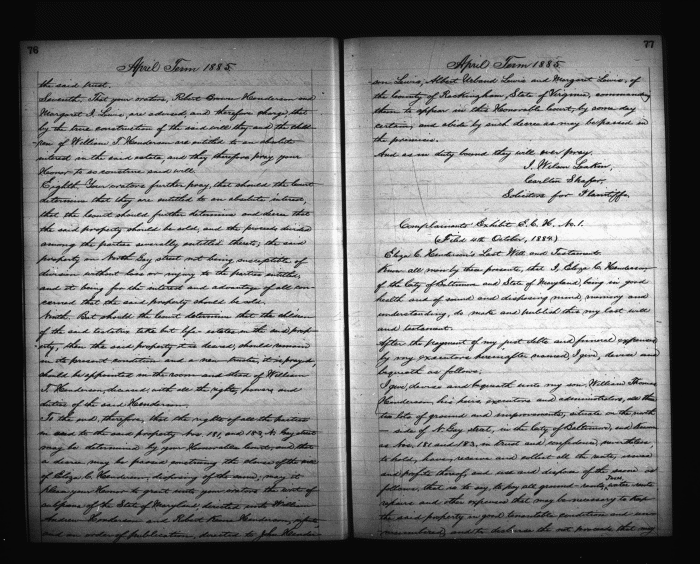 76
April Term 1885
the said trust.
Seventh. That your orators, Robert Bowie Henderson and
Margaret I. Lewis, are advised, and therefore charge, that
by the true construction of the said will they and the child-
ren of William T. Henderson are entitled to an absolute
interest in the said estate, and they therefore pray your
Honor to so construe said will.
Eighth. Your orators further pray, that should the Court
determine that they are entitled to an absolute interest,
that the Court should further determine and decree that
the said property should be sold, and the proceeds divided
among the parties severally entitled thereto, the said
property on North Gay street not being susceptible of
division without loss or injury to the parties entitled,
and it being for the interest and advantage of all con-
cerned that the said property should be sold.
Ninth. But should the Court determine that the children
of the said testatrix take but life estates in the said prop-
erty, then the said property it is desired, should remain
in its present condition and a new trustee, it is prayed,
should be appointed in the room and stead of William
T. Henderson, deceased, with all the rights, powers and
duties of the said Henderson.
To the end, therefore, that the rights of all the parties
in and to the said property Nos. 181, and 183, N. Gay street
may be determined by your Honorable Court, and that
a decree may be passed construing the clause of the will
of Eliza C. Henderson, disposing of the same; may it
please your Honor to grant unto your orators the writ of
subpoena of the State of Maryland, directed unto William
Andrew Henderson and Robert Henderson,
and an order of publication, directed to John
77
April Term 1885
son Lewis, Albert Urband Lewis and Margaret Lewis, of
the County of Rockingham, State of Virginia, commanding
them to appear in this Honorable Court, by some day
certain, and abide by such decree as may be passed in
the premises.
And as in duty bound they will ever pray,
J. Wilson
Carlton Shafer,
Solicitors for Plaintiffs.
Complainants' Exhibit E. C. H. No. 1.
(Filed 4th October, 1884)
Eliza C. Henderson's Last Will and Testament.
Know all men by these presents, that I, Eliza C. Henderson
of the City of Baltimore and State of Maryland, being in good
health and of sound and disposing mind, memory and
understanding, do make and publish this my last will
and testament.
After the payment of my just debts and funeral expenses
by my executors hereinafter named, I give, devise and
bequeath as follows:
I give, devise and bequeath unto my son, William Thomas
Henderson, his heirs, executors and administrators, all those
two lots of ground and improvements, situate on the north
side of N. Gay street, in the City of Baltimore, and known
as Nos. 181 and 183, in trust and confidence, nevertheless,
to hold, have, receive and collect all the rents, issues
and profits thereof, and use and dispose of the same as
follows, that is to say to pay all ground-rents, taxes
repairs and other expenses that may be necessary to keep
the said property in good tenantable condition and
unencumbered, and to discharge the net proceeds that my